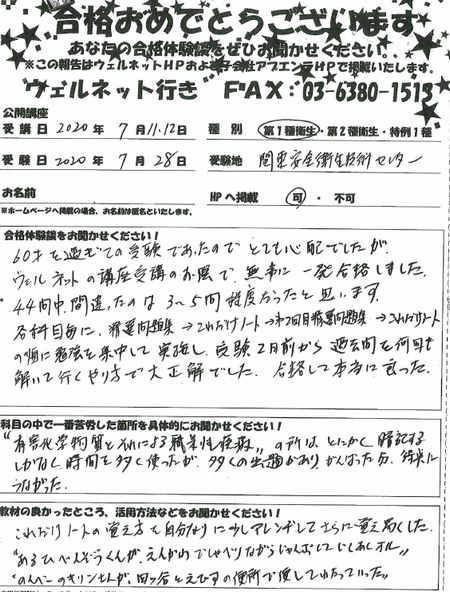 合格おめでとうございます
あなたの合格体験談をぜひお聞かせください。
※この報告はウェルネットHPおよび子会社アブエンテHPで掲載いたします。
ウェルネット行き FAX:03-6380-1513
公開講座
受講日 2020年 7月11.12日 種別 第1種衛生・第2種衛生・特例1種
受験日 2020年 7月28日 受験地 関東安全衛生技術センター
お名前 HPへ掲載 可・不可
※ホームページへ掲載の場合、お名前は匿名といたします。
合格体験談をお聞かせください!
60才を過ぎての受験であったのでとても心配でしたが、
ウェルネットの講座受講のお陰で、無事に一発合格しました。
44問中、間違ったのは3〜5問程度だったと思います。
各科目毎に、精選問題集→これだけノート→第2回目精選問題集→これだけノート
の順に勉強を集中して実施し、受験2日前から過去問を何回も
解いて行くやり方で大正解でした。合格して本当に良かった。
科目の中で一番苦労した箇所を具体的にお聞かせください!
"有害化学物質とそれによる職業性疾病"の所は、とにかく暗記する
しかなく時間を多く使ったが、多くの出題があり、がんばった分、得点に
つながった。
教材の良かったところ、活用方法などをお聞かせください!
これだけノートの覚え方を自分なりに少しアレンジしてさらに覚え易くした。